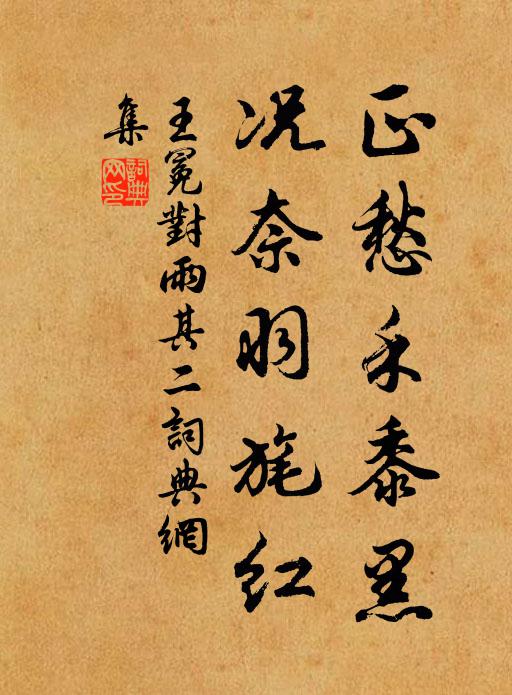 正愁禾黍黑
况奈羽旄红
王冕對雨其二詞典網
集
詞典
网印